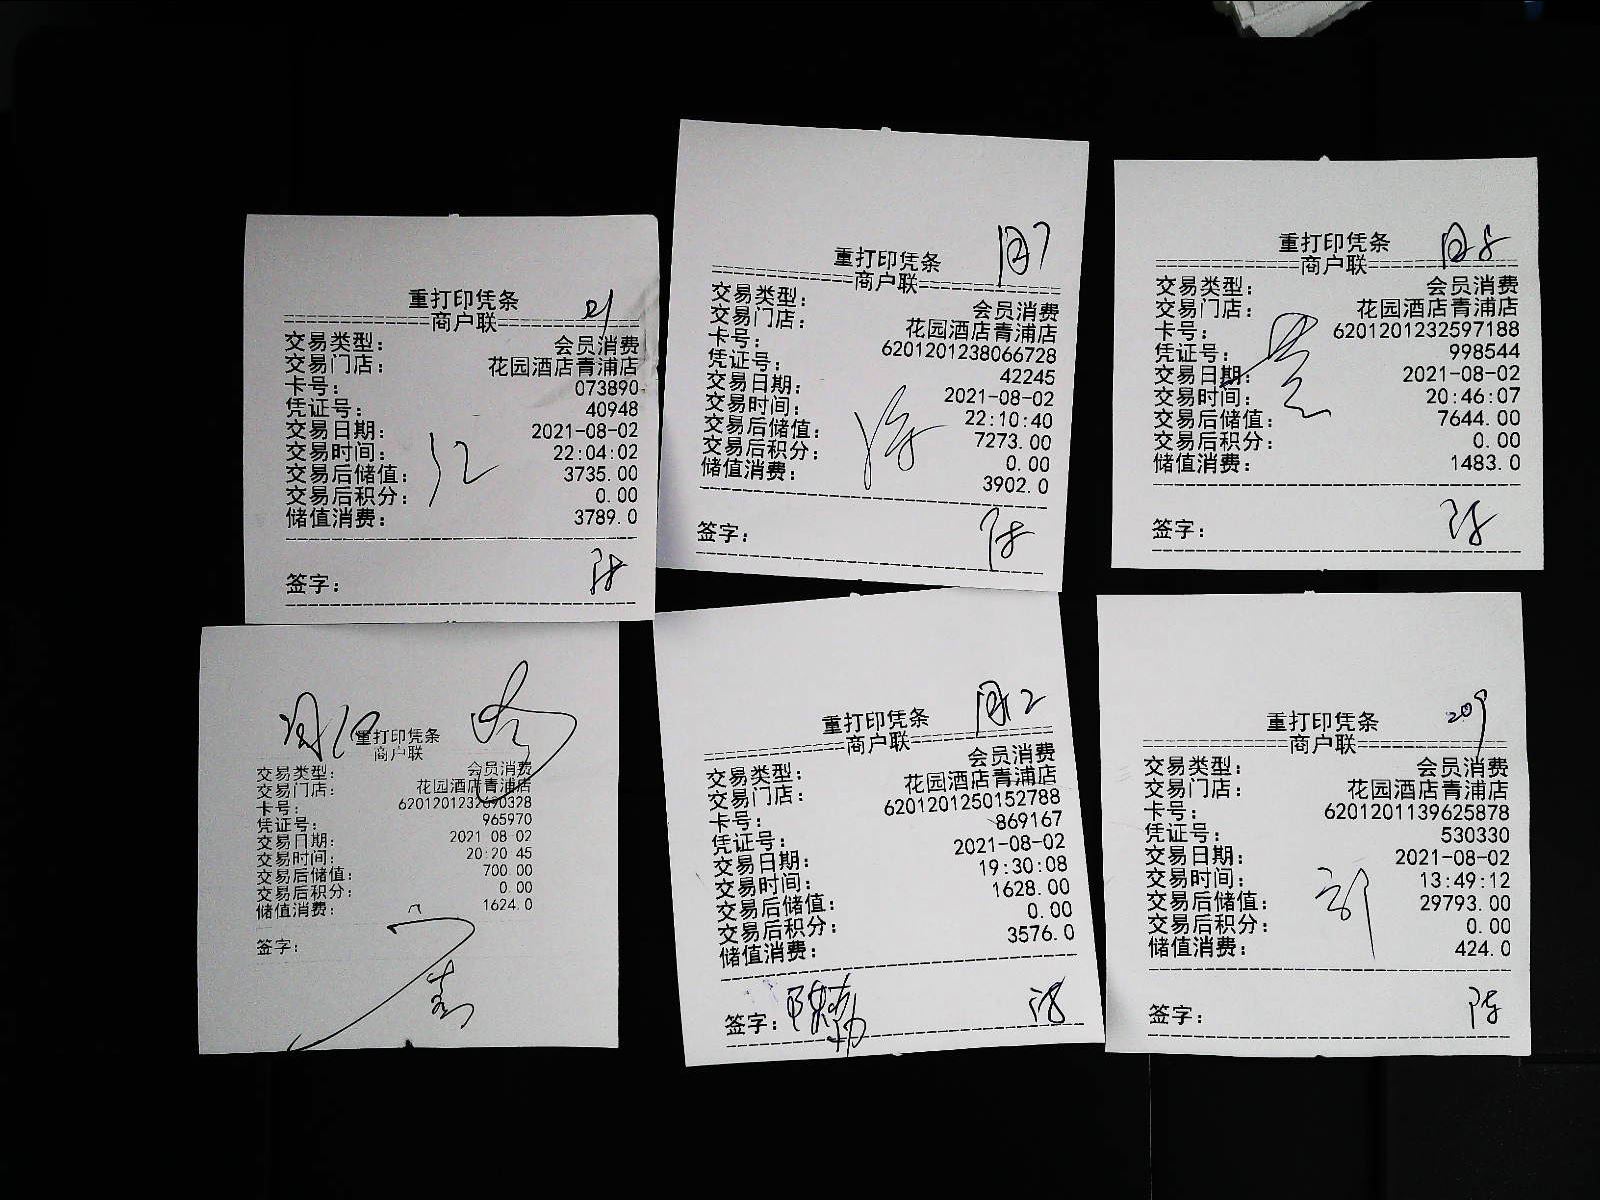 重打印凭条
==========商户联==========
交易类型： 会员消费
交易门店： 花园酒店青浦店
卡号： 073890
凭证号： 40948
交易日期： 2021-08-02
交易时间： 22:04:02
交易后储值： 3735.00
交易后积分： 0.00
储值消费： 3789.0
签字：
重打印凭条
==========商户联==========
交易类型： 会员消费
交易门店： 花园酒店青浦店
卡号： 6201201238066728
凭证号： 42245
交易日期： 2021-08-02
交易时间： 22:10:40
交易后储值： 7273.00
交易后积分： 0.00
储值消费： 3902.0
签字：
重打印凭条
==========商户联==========
交易类型： 会员消费
交易门店： 花园酒店青浦店
卡号： 6201201232597188
凭证号： 998544
交易日期： 2021-08-02
交易时间： 20:46:07
交易后储值： 7644.00
交易后积分： 0.00
储值消费： 1483.0
签字：
重打印凭条
商户联
交易类型： 会员消费
交易门店： 花园酒店青浦店
卡号： 6201201232690328
凭证号： 965970
交易日期： 2021 08-02
交易时间： 20:20 45
交易后储值： 700 00
交易后积分： 0.00
储值消费： 1624.0
签字：
重打印凭条
==========商户联==========
交易类型： 会员消费
交易门店： 花园酒店青浦店
卡号： 6201201250152788
凭证号： 869167
交易日期： 2021-08-02
交易时间： 19:30:08
交易后储值： 1628.00
交易后积分： 0.00
储值消费： 3576.0
签字：
209
重打印凭条
==========商户联==========
交易类型： 会员消费
交易门店： 花园酒店青浦店
卡号： 6201201139625878
凭证号： 530330
交易日期： 2021-08-02
交易时间： 13:49:12
交易后储值： 29793.00
交易后积分： 0.00
储值消费： 424.0
签字：